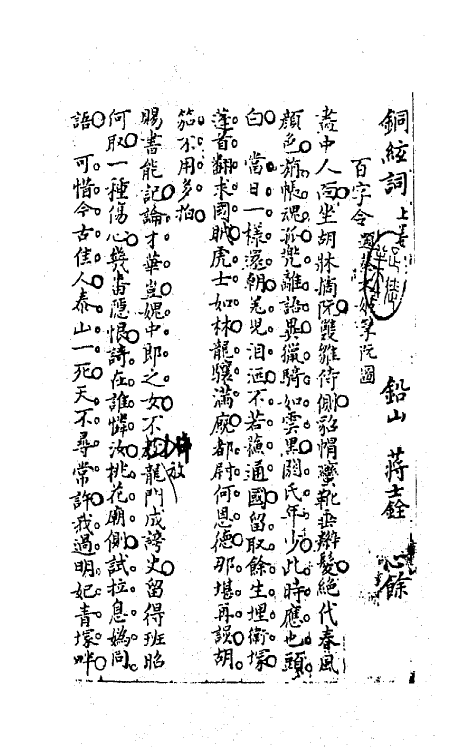 銅絃詞上 鉛山 蔣士銓 心餘
百字令 題蔡文姬摘阮圖
畫中人面坐胡牀摘阮雙雛侍側貂帽蠻靴垂辮髮絕代春風
顏色旃帳魂孤兜離語異獵騎如雲黑閼氏年少此時應也頭
白 當日一樣還朝羌兒泪洒不若蘇通國留取餘生埋衛塚
蓬首翻求國賊虎士如林龍驤滿廄都尉何恩德那堪再誤胡
笳不用多拍
賜書能記論才華豈媿中郎之女不 龍門成謗史留得班昭
何取一種傷心幾番隱恨詩在誰憐汝桃花廟側試拉息媯同
語 可惜今古佳人泰山一死天不尋常許我過明妃青塚畔